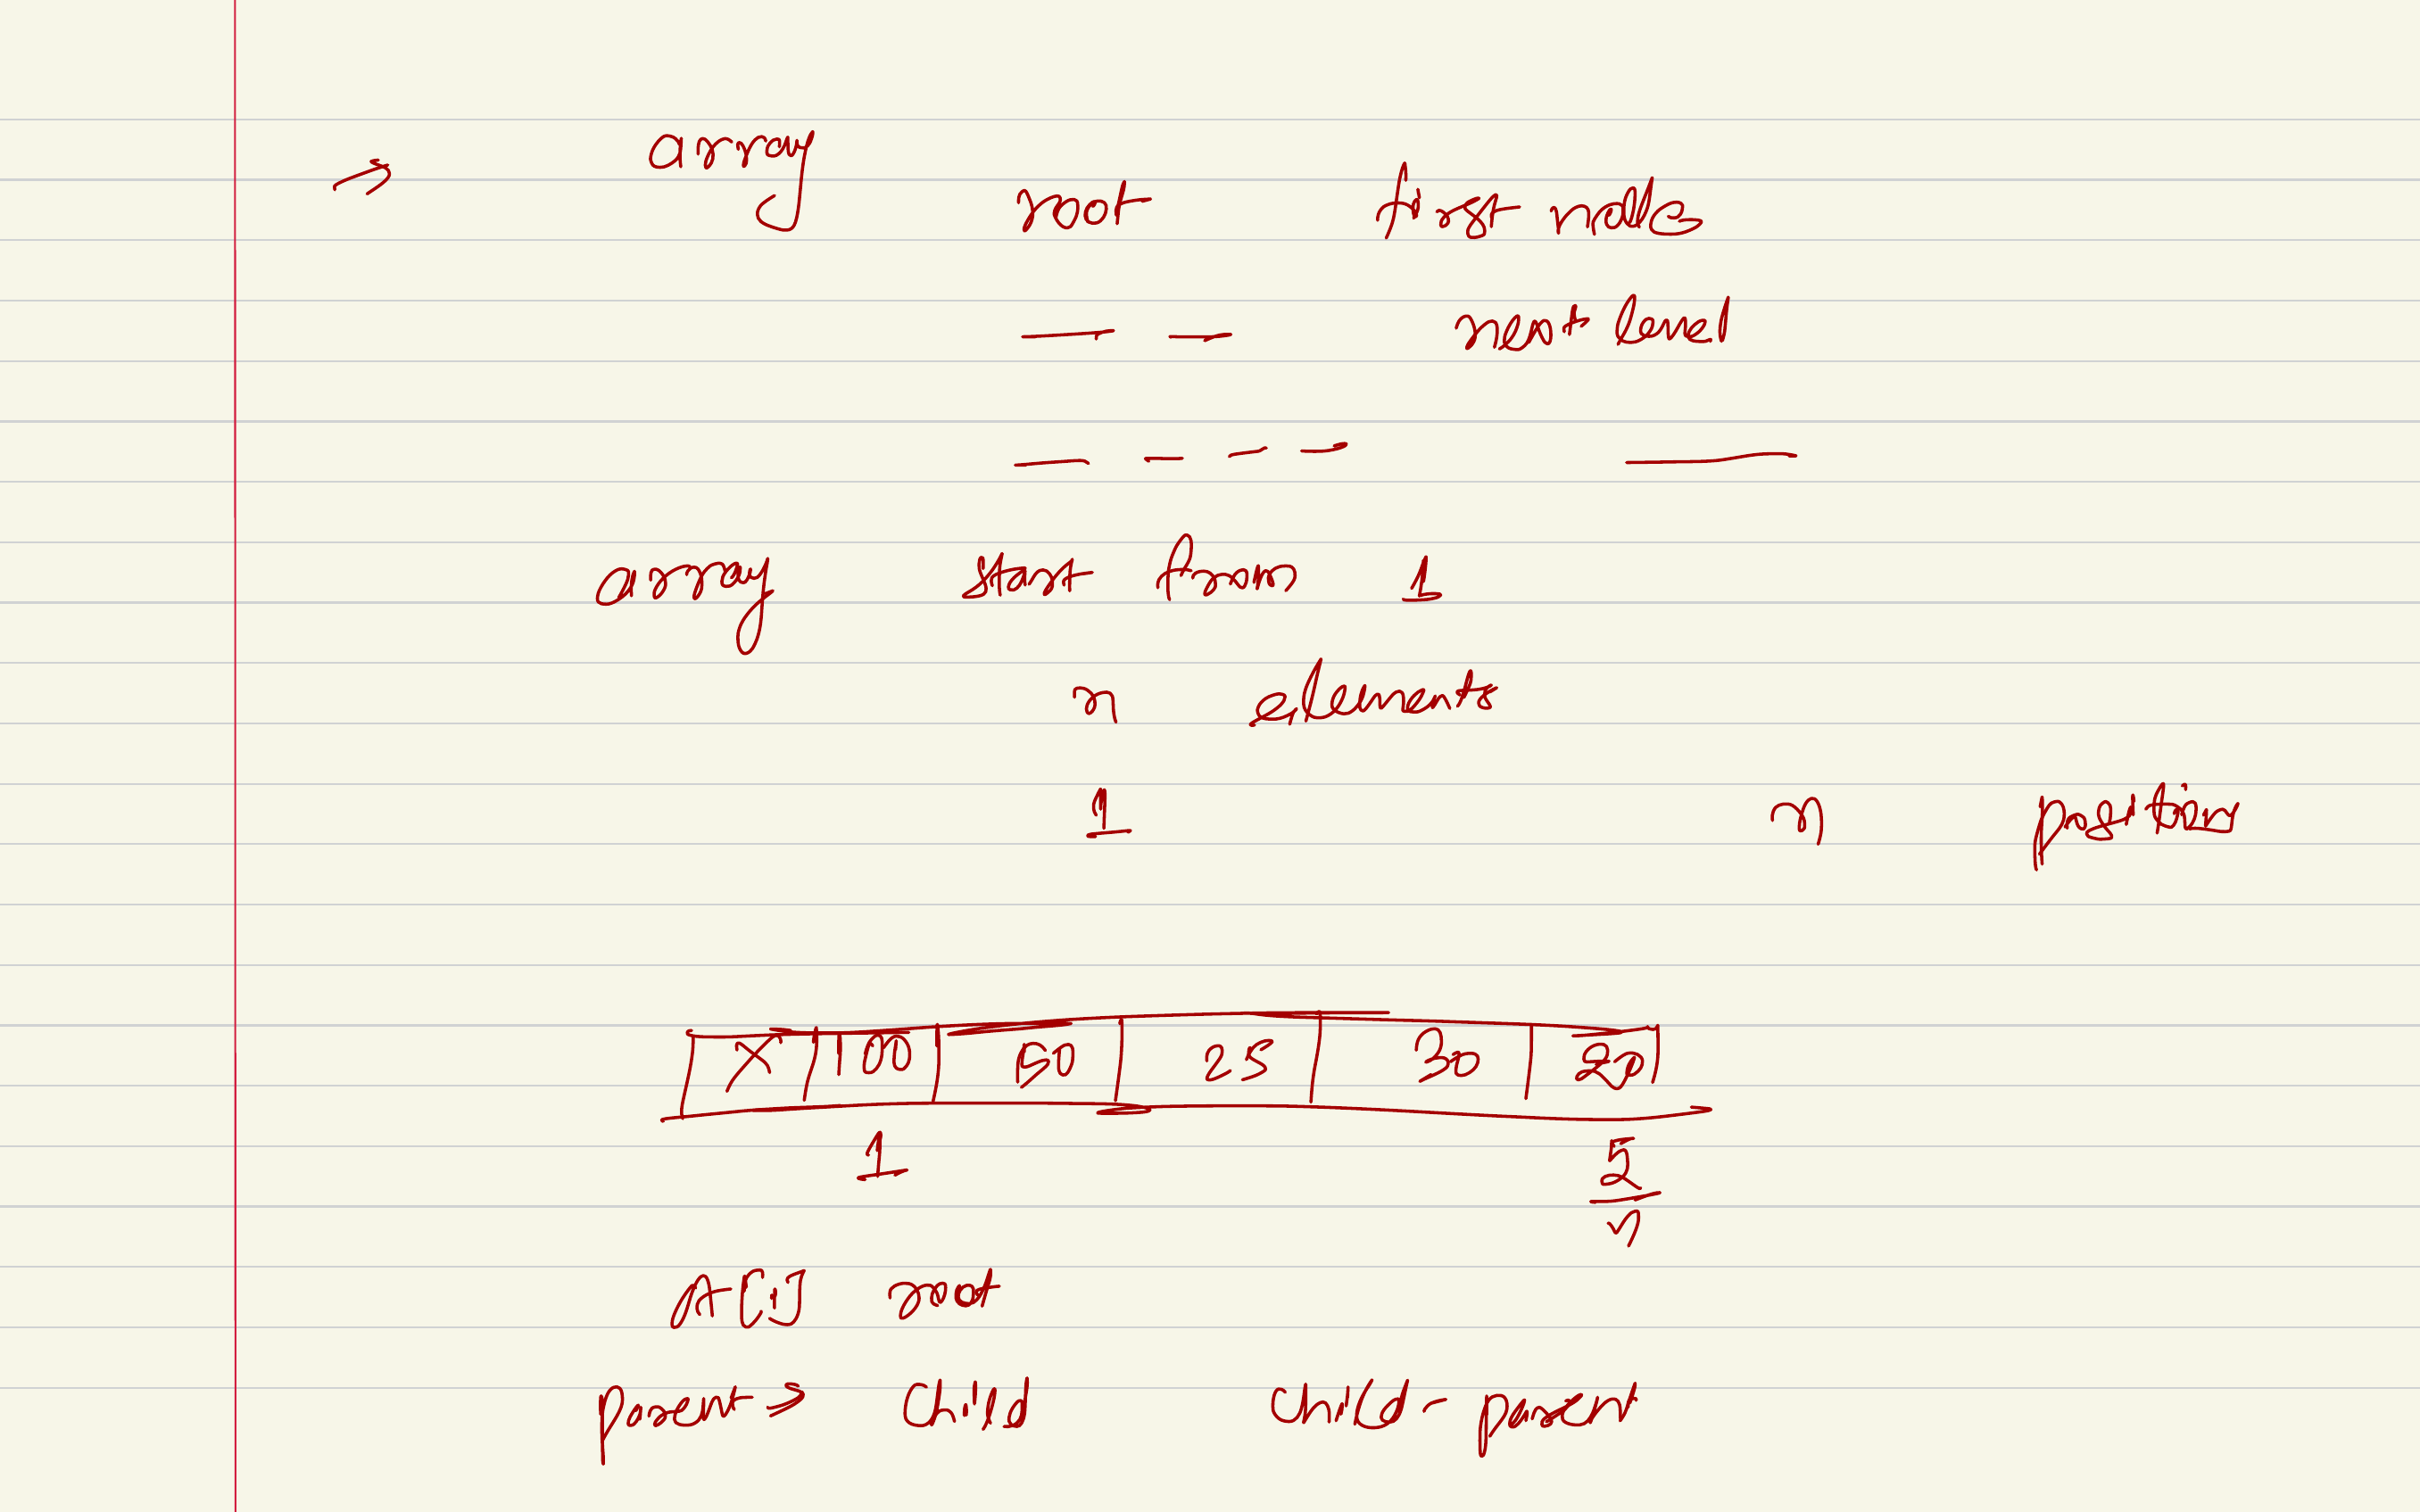 array
root first node
next level
array start from 1
n elements
1 n position
X 100 50 25 30 20
1 5
n
A[1] root
parent → child child - parent